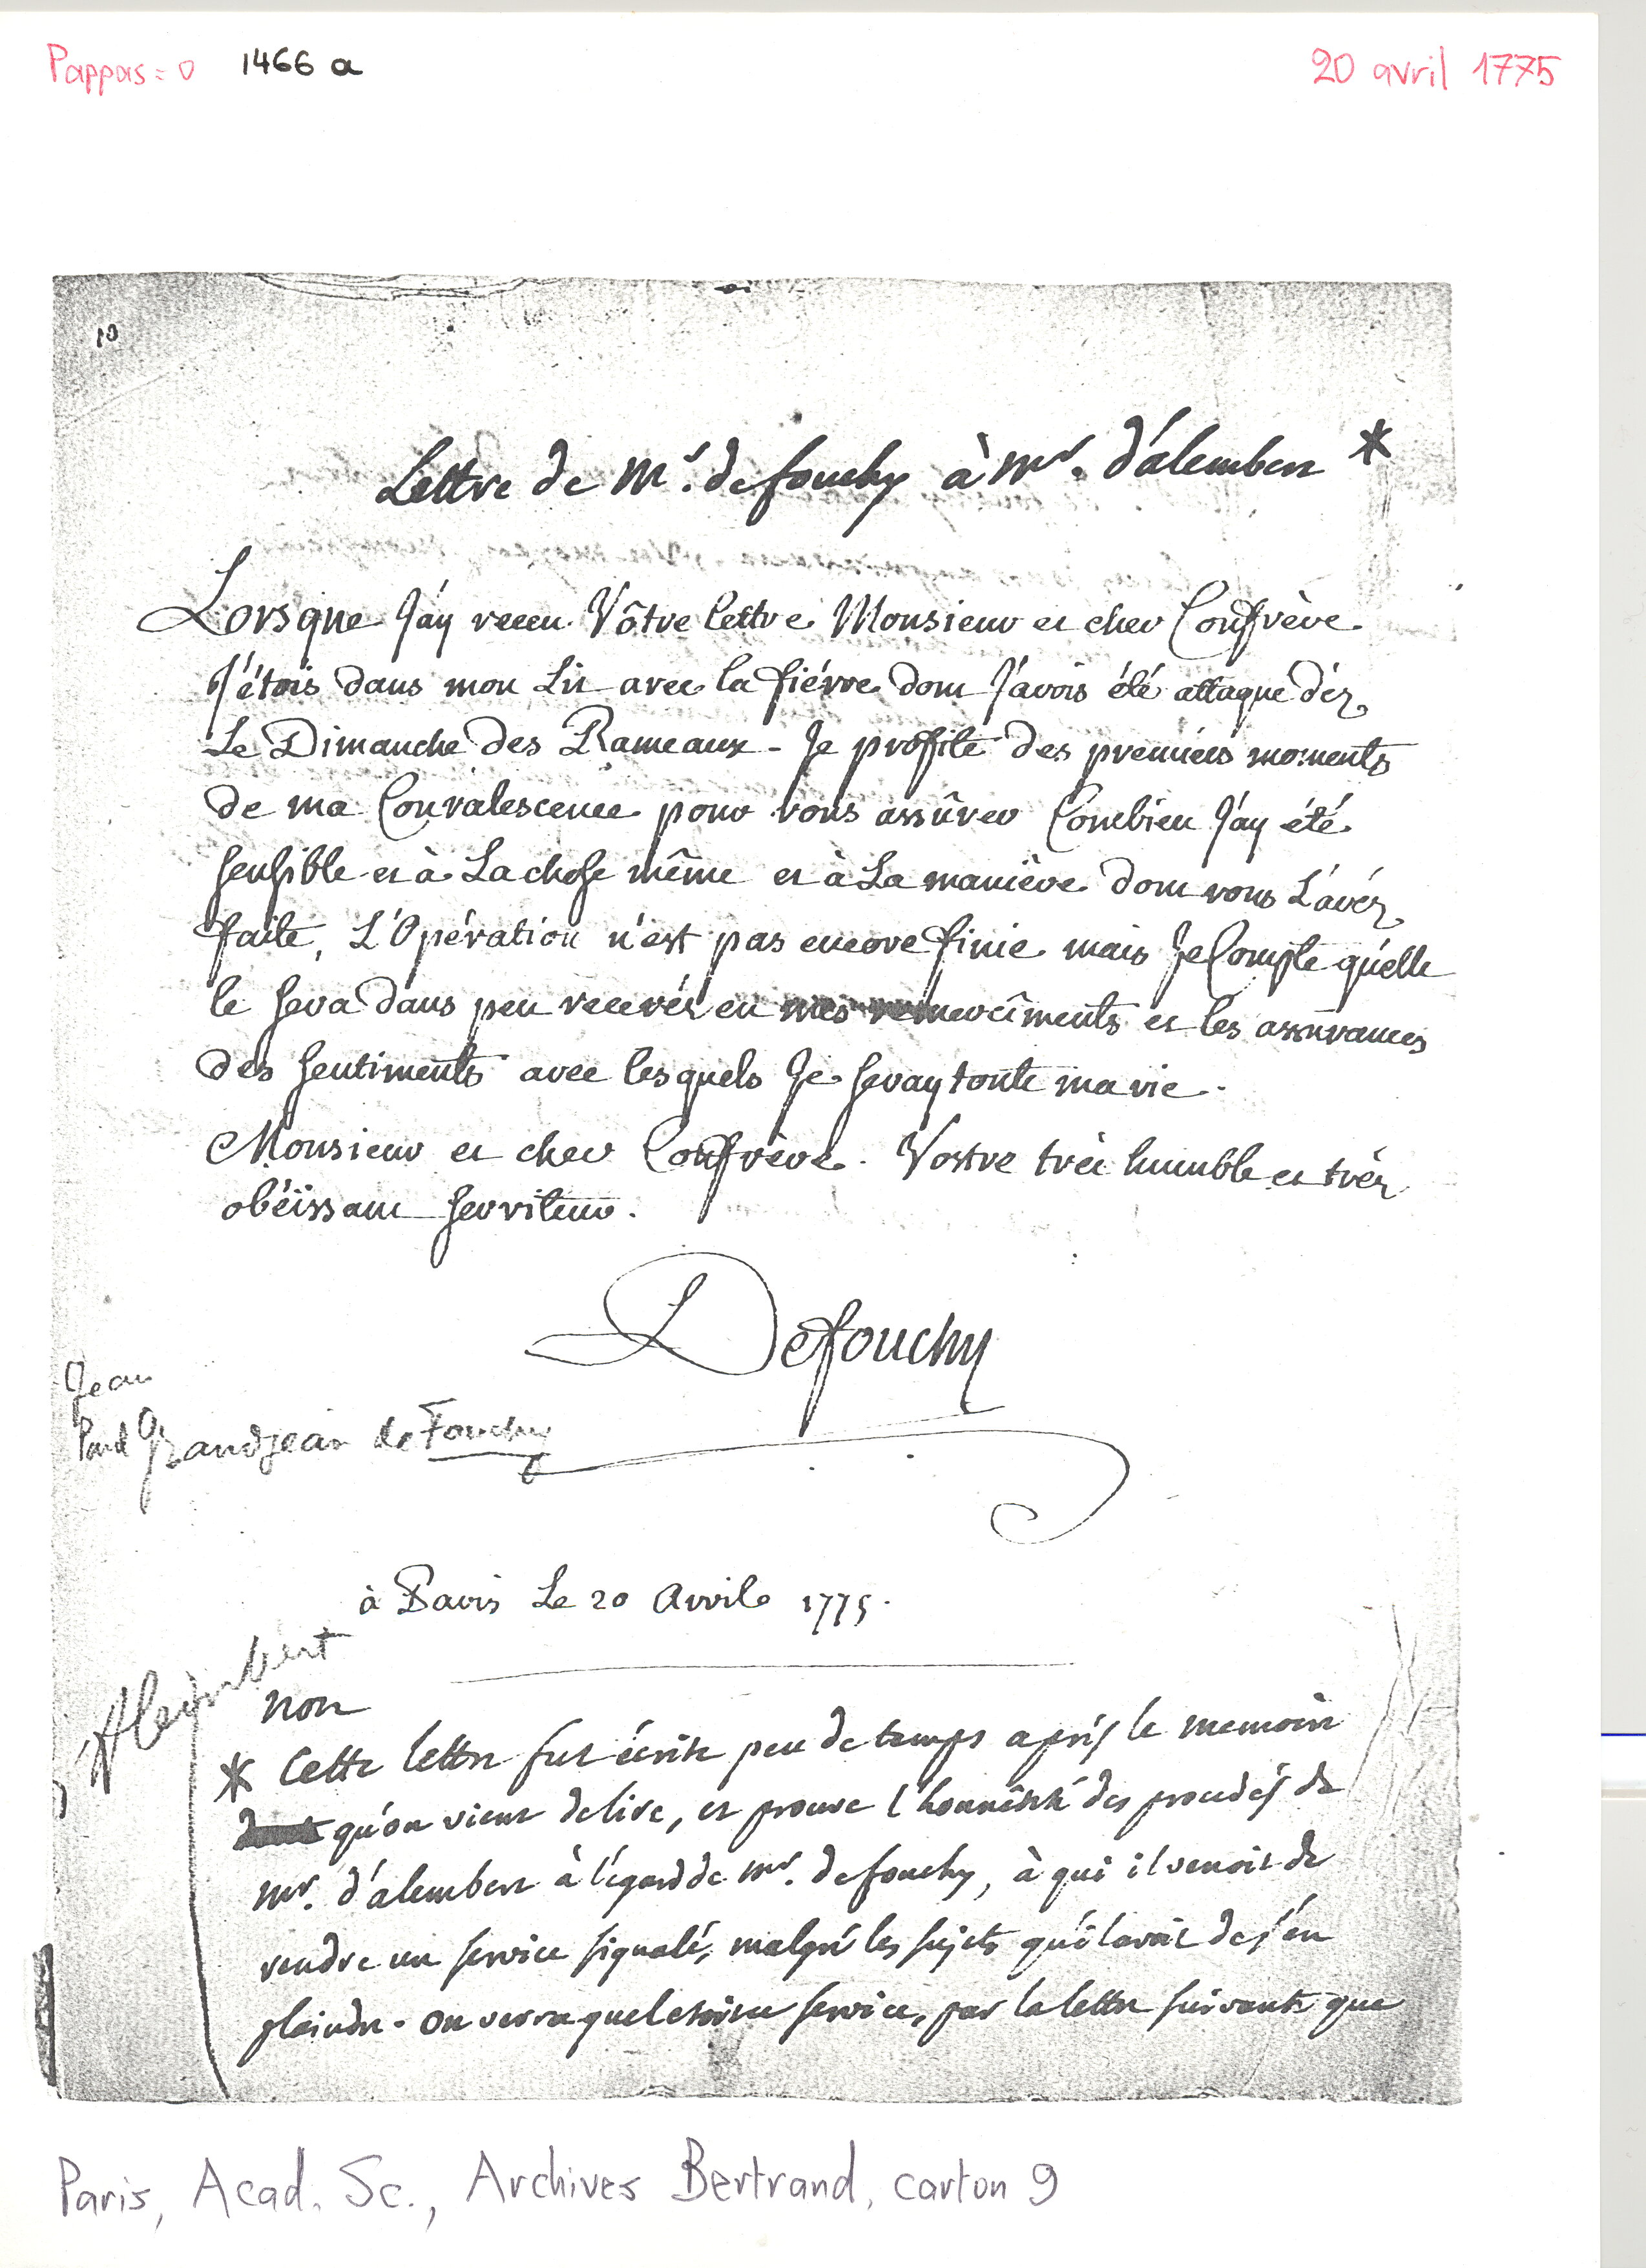 Pappas = 0 1466 a 20 avril 1775
10
Lettre de Mr. de fouchy à Mr. d'alembert *
Lorsque J'ay receu Vôtre lettre Monsieur et cher Confrère
J'étois dans mon Lit avec la fiévre dont J'avois été attaqué dèz
Le Dimanche des Rameaux - Je profite des premiers moments
de ma Convalescence pour vous assûrer Combien J'ay été
sensible et à La chose même et à La manière dont vous L'avéz
faite, L'Opération n'est pas encore finie mais Je Compte qu'elle
le sera dans peu recevéz en mes remercîments et les assurances
des sentiments avec lesquels Je seray toute ma vie.
Monsieur et cher Confrère. Vostre trèz humble et trèz
obéissant serviteur.
Defouchy
Jean
Paul Grandjean de Fouchy
à Paris Le 20 Avril 1775.
d'Alembert
non
* Cette lettre fut écrite peu de temps après le memoire
dont qu'on vient de lire, et prouve l'honnêteté des procedés de
Mr. d'alembert à l'égard de Mr. de fouchy, à qui il venoit de
rendre un service signalé, malgré les sujets qu'il avoit de s'en
plaindre. on verra quel etoit ce service, par la lettre suivante que
Paris, Acad. Sc., Archives Bertrand, carton 9